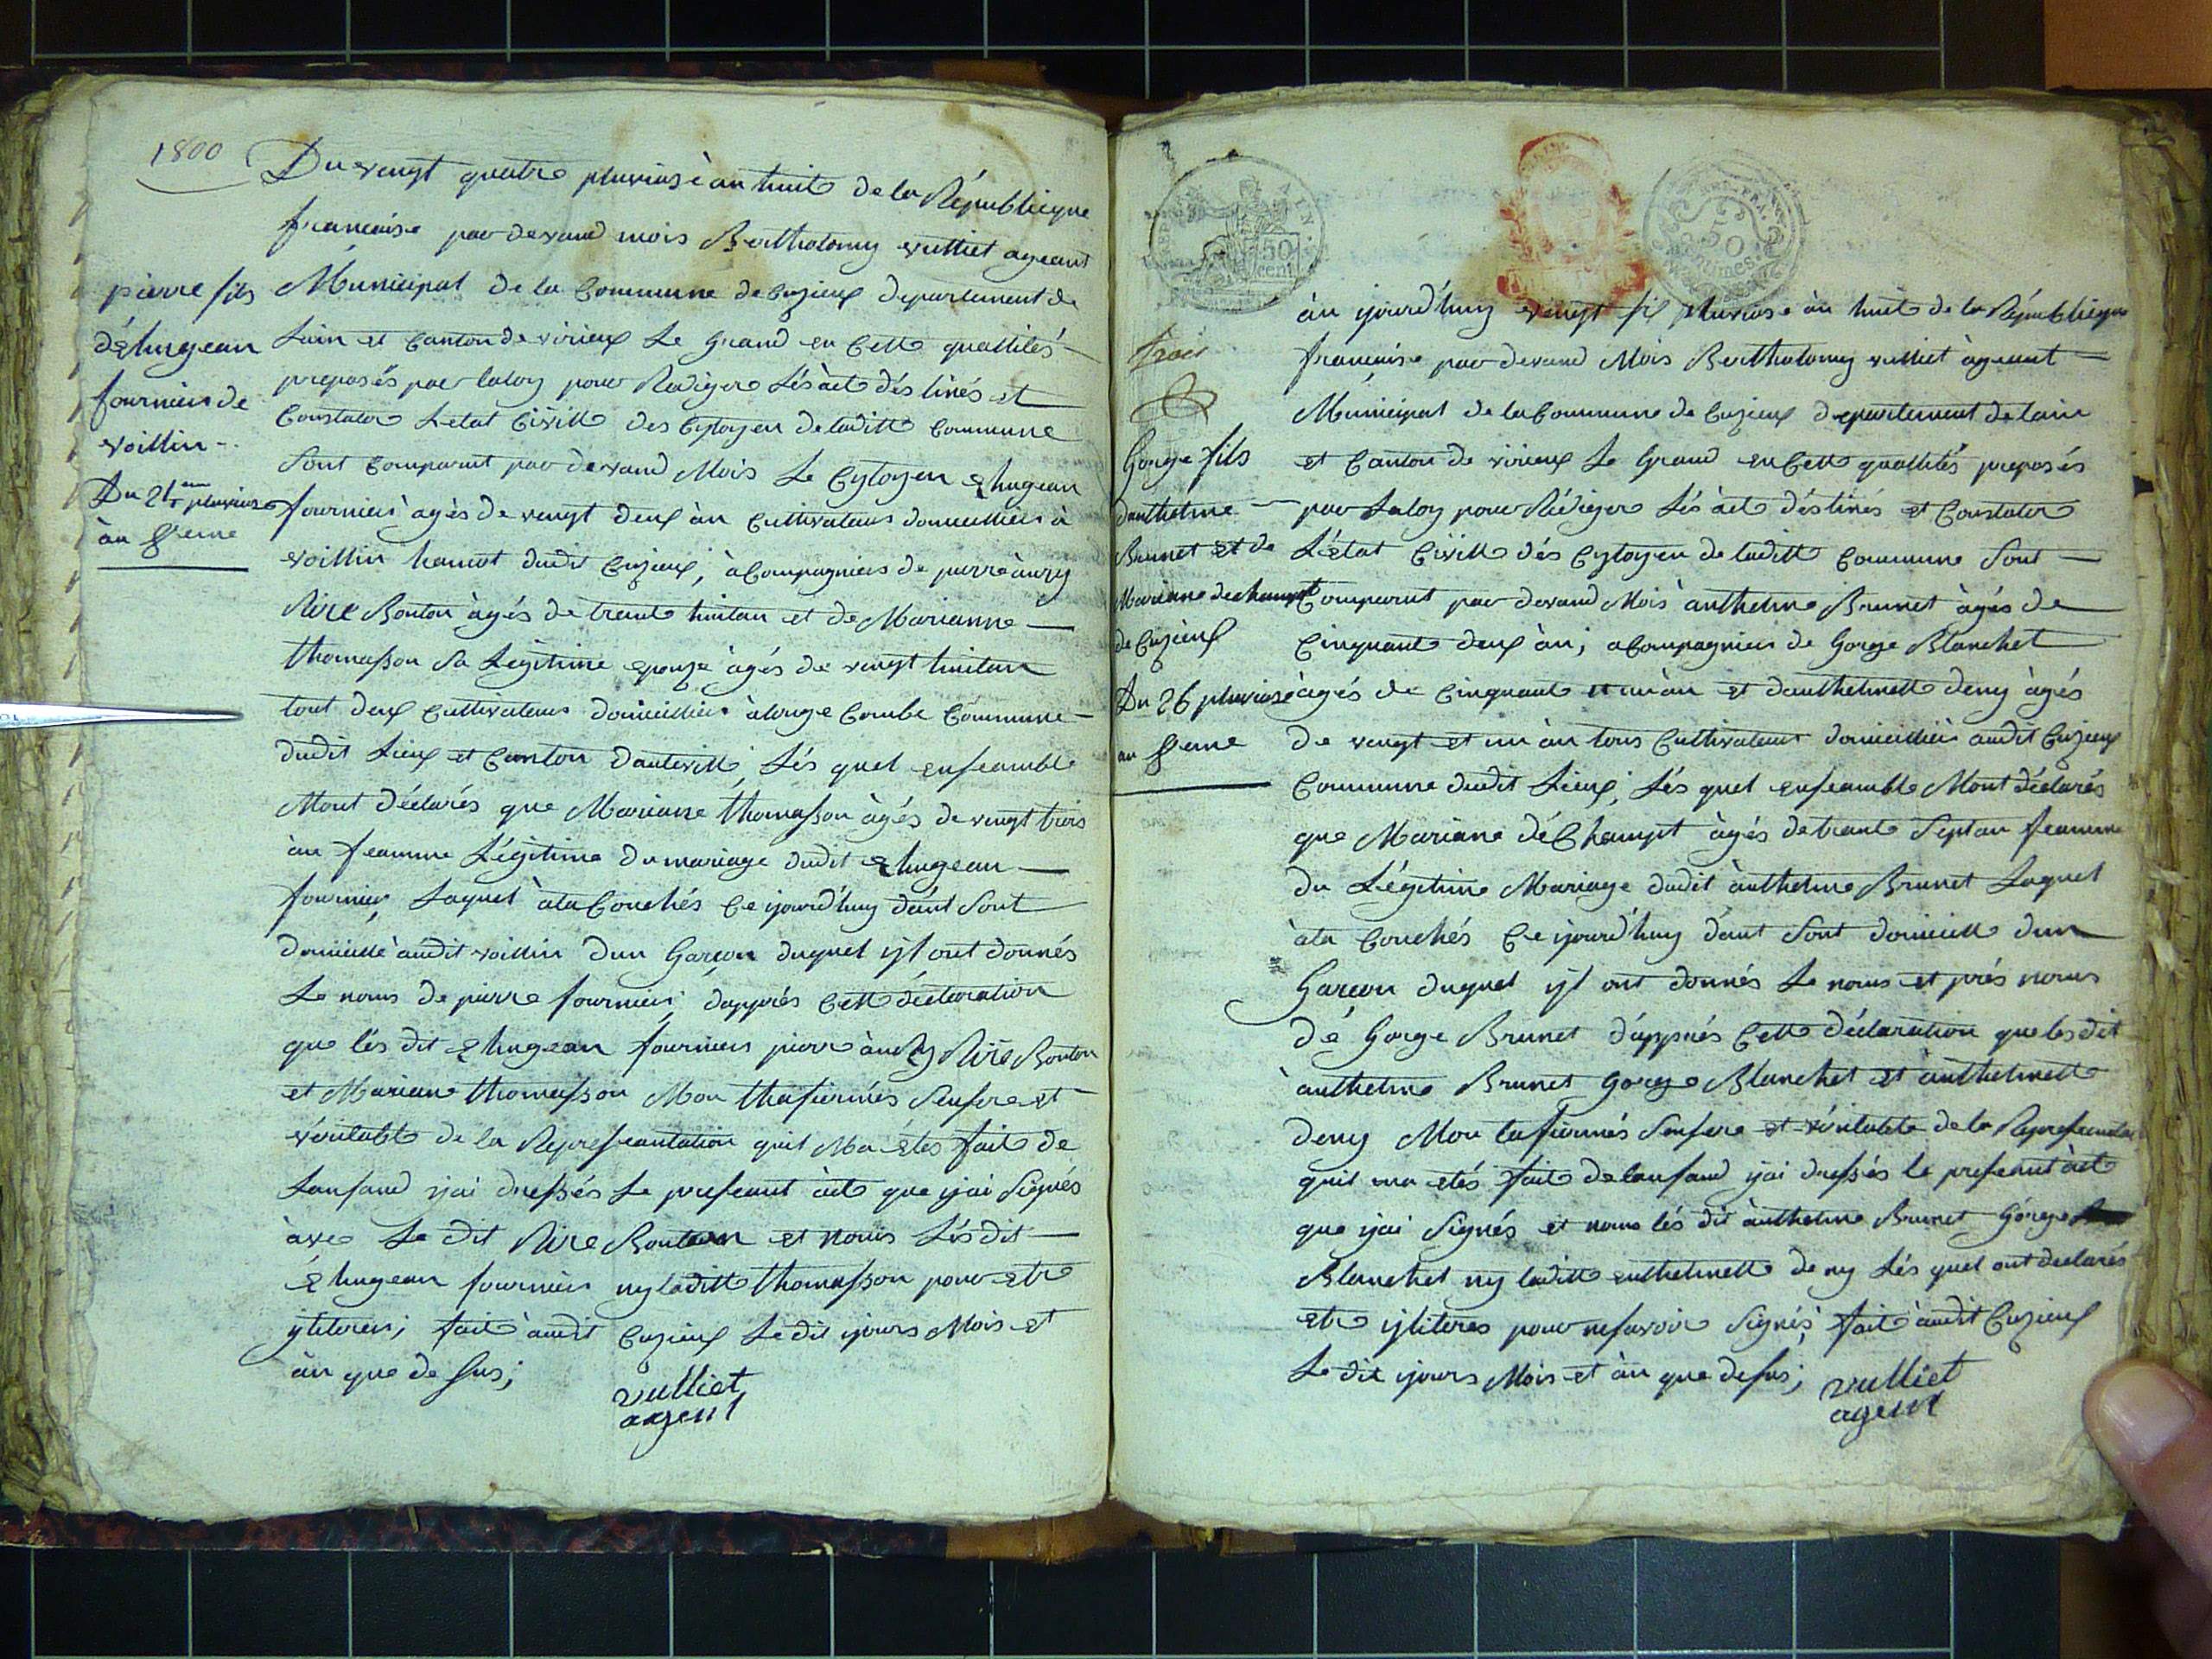 1800
Du vengt quatre pluviosè an huit de la Républicque
francaise par devand mois Bertholomy vulliet ageant
Municipal de la Commune de Cuzieux departement de
Lain et Canton de virieux Le Grand en Cette quallités
preposés par laloy pour Rediger Lés àct déstinés et
Constater Letat Civill des Cytoyen deladitte Commune
Sont Comparut par devand Mois Le Cytoyen Ehugean
fourniér àgés de vengt deux àn Cultivateur domicilliér à
voillin hamot dudit Cuzieux, àCompagniés de pierre
Bouton àgés de trente huitan et de Marianne
thomasson Sa Legitime epouze àgés de vengt huitan
tout deux Cultivateur domicilliér àlonge Combe Commune
dudit Lieux et Canton dautevill, Lés quel enseamble
Mont déclarés que Mariane thomasson àgés de vengt trois
àn feamme Légitime du mariage dudit Ehugean
fournier, Laquel àla Couchés Ce ijourd'huy dént Sont
domicille àudit voillin dun Garcon duquel ijl ont donnés
Le noms de pierre fourniér, dapprés Cette déclaration
que lés dit Ehugean fourniér pierre Bouton
et Mariane thomasson Mon thafirmés Sensere et
véritable de la Represeantation quil Ma étés fait de
Lanfand ijai dressés Le preseant àct que ijai Signés
àvec Le dit Bouton et nonis Lésdit
Ehugean fourniér ny laditte thomasson pour etre
fait àudit Cuzieux Le dit ijours Mois et
àn que de Sus;
vulliet
agent
pierre fils
déhugean
fourniér de
voillin
Du pluviose
àn 8eme
trois
Gorge fils
danthelme
Brunet et de
Mariane dechampt
de Cuzieux
Du 26 pluviose
an 8eme
àn ijourd'huy vengt six pluviose àn huit de la Républicque
francaise par devand Mois Bertholomy vulliet àgeant
Municipal de la Commune de Cuzieux departement de lain
et Canton de virieux Le Grand en Cette quallités preposés
par Laloy pour Rédiger Lés àct déstinés et Constater
Létat Civill dés Cytoyen de laditte Commune Sont
Comparut par devand Mois anthelme Brunet àgés de
Cinquante deux àn; aCompagniér de Gorge Blanchet
àgés de Cinquante et un àn et danthelmette deny àgés
de vengt et un àn tous Cultivateur domicilliér audit Cuzieux
Commune dudit Lieux, Lés quel enseamble Mont déclarés
que Mariane déChampt àgés de trante Septan feamme
du Légitime Mariage dudit ànthelme Brunet Laquel
àla Couchés Ce ijourd'huy dant Sont domicille dun
Garcon duquel ijl ont donnés Le noms et prés noms
dé Gorge Brunet dapprés Cette déclaration que les dit
ànthelme Brunet Gorge Blanchet et ànthelmette
deny Mon lafirmés Sensere et véritable de la
quil ma etés fait de lanfand ijai dressés le preseant àct
que ijai Signés et nonis lés dit ànthelme Brunet Gorge
Blanchet ny laditte anthelmette deny Lés quel ont declarés
etre ijliteres pour nesavoir Signés, fait àudit Cuzieux
Le dit ijours Mois et àn que desus; vulliet
agent
50
cent
50
centimes